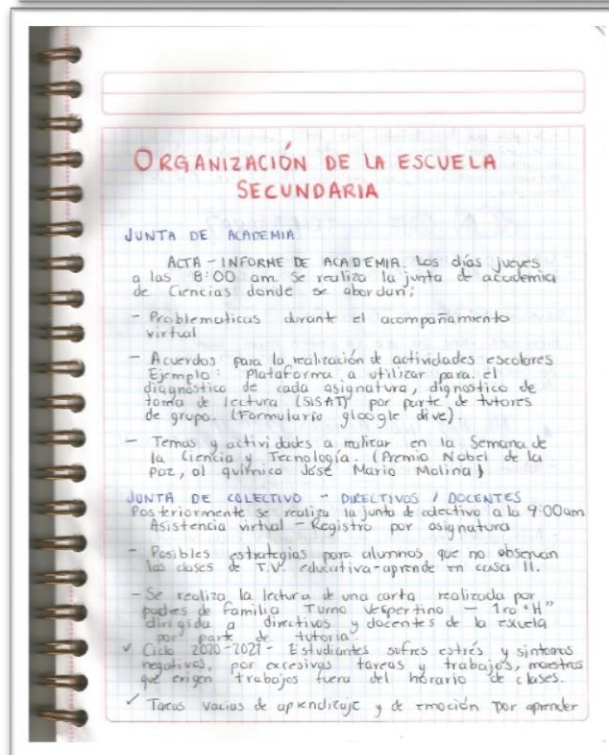 ORGANIZACIÓN DE LA ESCUELA
SECUNDARIA
JUNTA DE ACADEMIA
ACTA - INFORME DE ACADEMIA. Los días jueves
a las 8:00 am. Se realiza la junta de academia
de Ciencias donde se abordan;
- Problematicas durante el acompañamiento
virtual
- Acuerdos para la realización de actividades escolares
Ejemplo: Plataforma a utilizar para el
diagnostico de cada asignatura, dignostico de
toma de lectura (SISAT) por parte de tutores
de grupo. (Formulario gloogle dive).
- Temas y actividades a realizar en la Semana de
la Ciencia y Tecnología. (Premio Nobel de la
Paz, al químico José Mario Molina)
JUNTA DE COLECTIVO - DIRECTIVOS / DOCENTES
Posteriormente se realiza la junta de colectivo a la 9:00am
Asistencia virtual - Registro por asignatura
- Posibles estrategias para alumnos que no observan
las clases de T.V. educativa-aprende en casa II.
- Se realiza la lectura de una carta realizada por
padres de familia Turno Vespertino - 1ro "H"
dirigida a directivos y docentes de la escuela
por parte de tutoria.
✓ Ciclo 2020-2021 - Estudiantes sufres estrés y sintomas
negativos, por excesivas tareas y trabajos, maestros
que exigen trabajos fuera del horario de clases.
✓ Tareas vacias de aprendizaje y de emoción por aprender